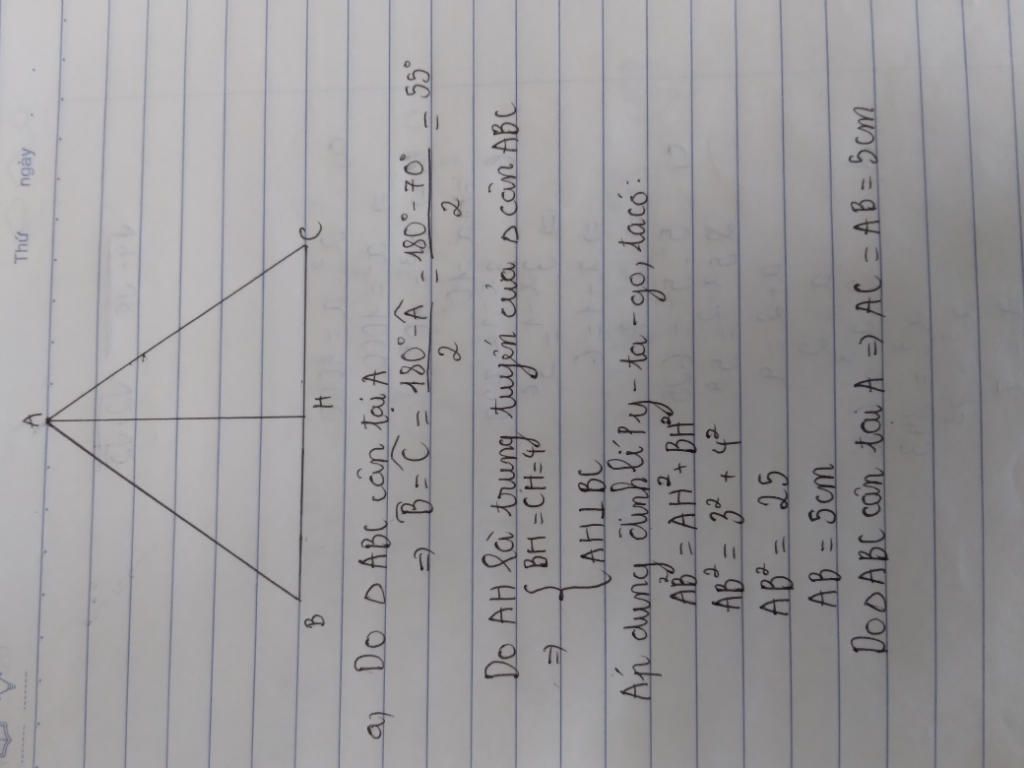 Thứ ngày
A
B H C
a) Do △ABC cân tại A
=> B̂ = Ĉ = (180° - Â)/2 = (180° - 70°)/2 = 55°
Do AH là trung tuyến của △ cân ABC
=> { BH = CH = 4
AH⊥BC
Áp dụng định lí Py-ta-go, ta có:
AB² = AH² + BH²
AB² = 3² + 4²
AB² = 25
AB = 5cm
Do △ABC cân tại A => AC = AB = 5cm